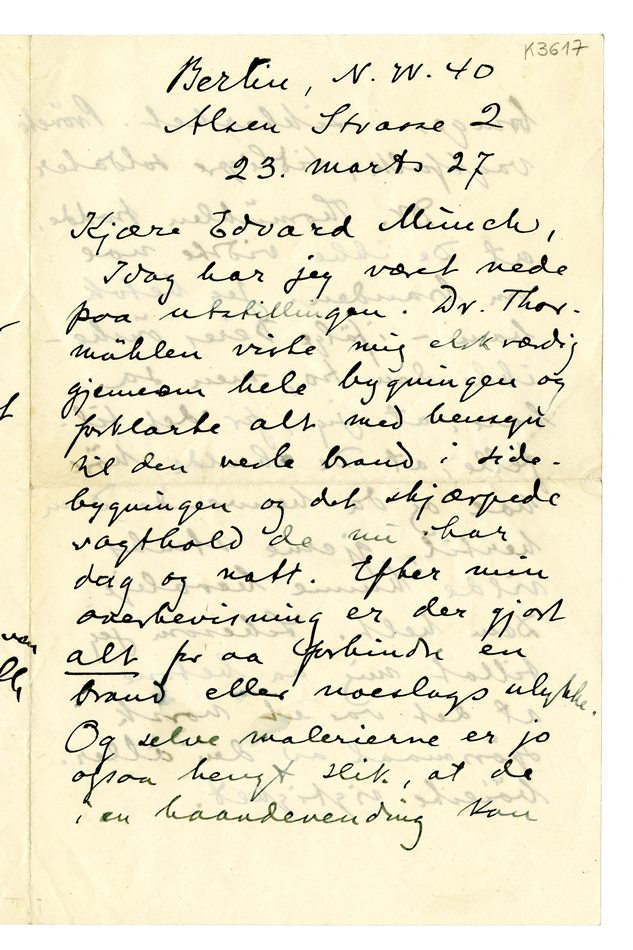 K3617
Berlin, N. W. 40
Alsen Strasse 2
23. marts 27
Kjære Edvard Münch,
Idag har jeg været nede
paa utstillingen. Dr. Thor-
mählen viste mig elskværdig
gjennem hele bygningen og
forklarte alt med hensyn
til den vesle brand i side-
bygningen og det skjærpede
vagthold de nu har
dag og natt. Efter min
overbevisning er der gjort
alt for aa forhindre en
brand eller noeslags ulykke.
Og selve malerierne er jo
ogsaa hengt slik, at de
i en haandevending kan